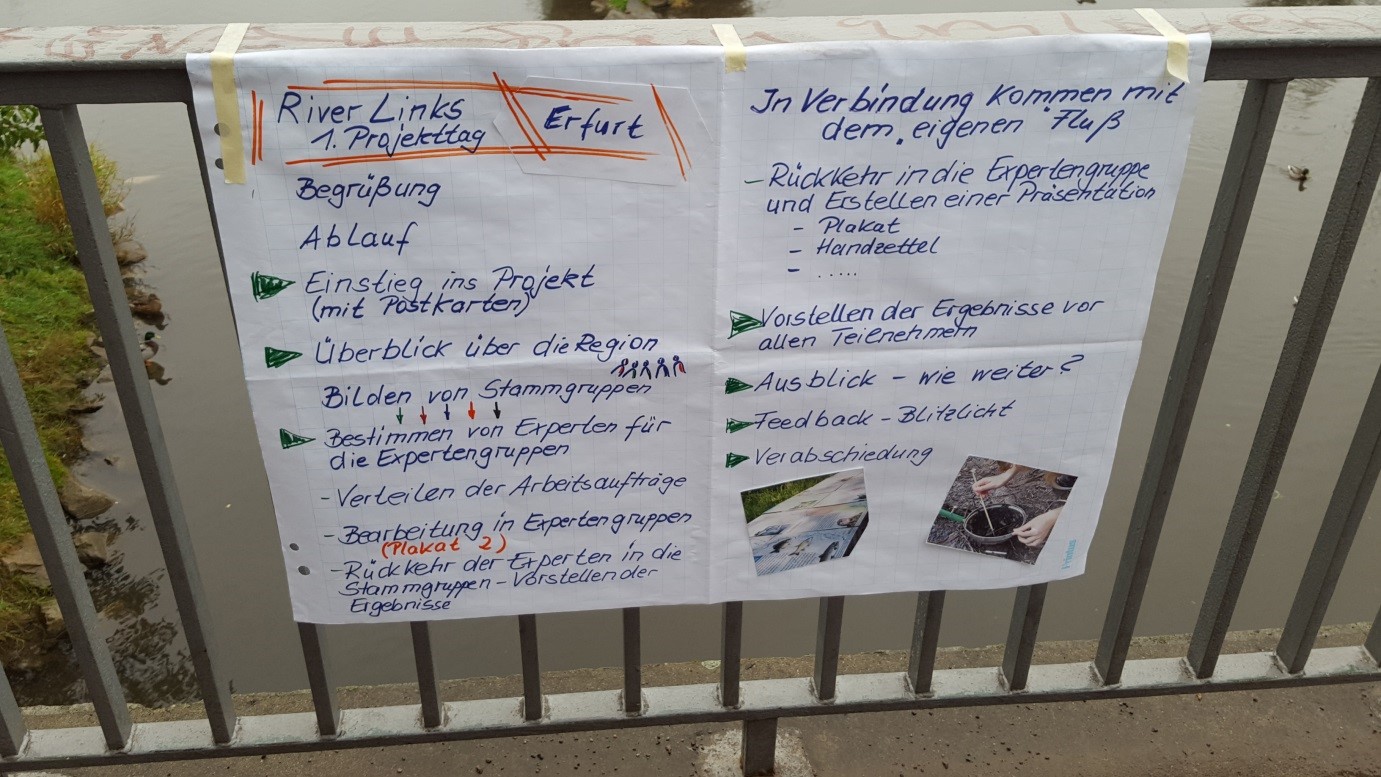 River Links
1. Projekttag
Erfurt
Begrüßung
Ablauf
Einstieg ins Projekt
(mit Postkarten)
Überblick über die Region
Bilden von Stammgruppen
Bestimmen von Experten für
die Expertengruppen
- Verteilen der Arbeitsaufträge
- Bearbeitung in Expertengruppen
(Plakat 2)
- Rückkehr der Experten in die
Stammgruppen - Vorstellen der
Ergebnisse
In Verbindung kommen mit
dem "eigenen" Fluß
- Rückkehr in die Expertengruppe
und Erstellen einer Präsentation
- Plakat
- Handzettel
- .....
Vorstellen der Ergebnisse vor
allen Teilnehmern
Ausblick - wie weiter?
Feedback - Blitzlicht
Verabschiedung